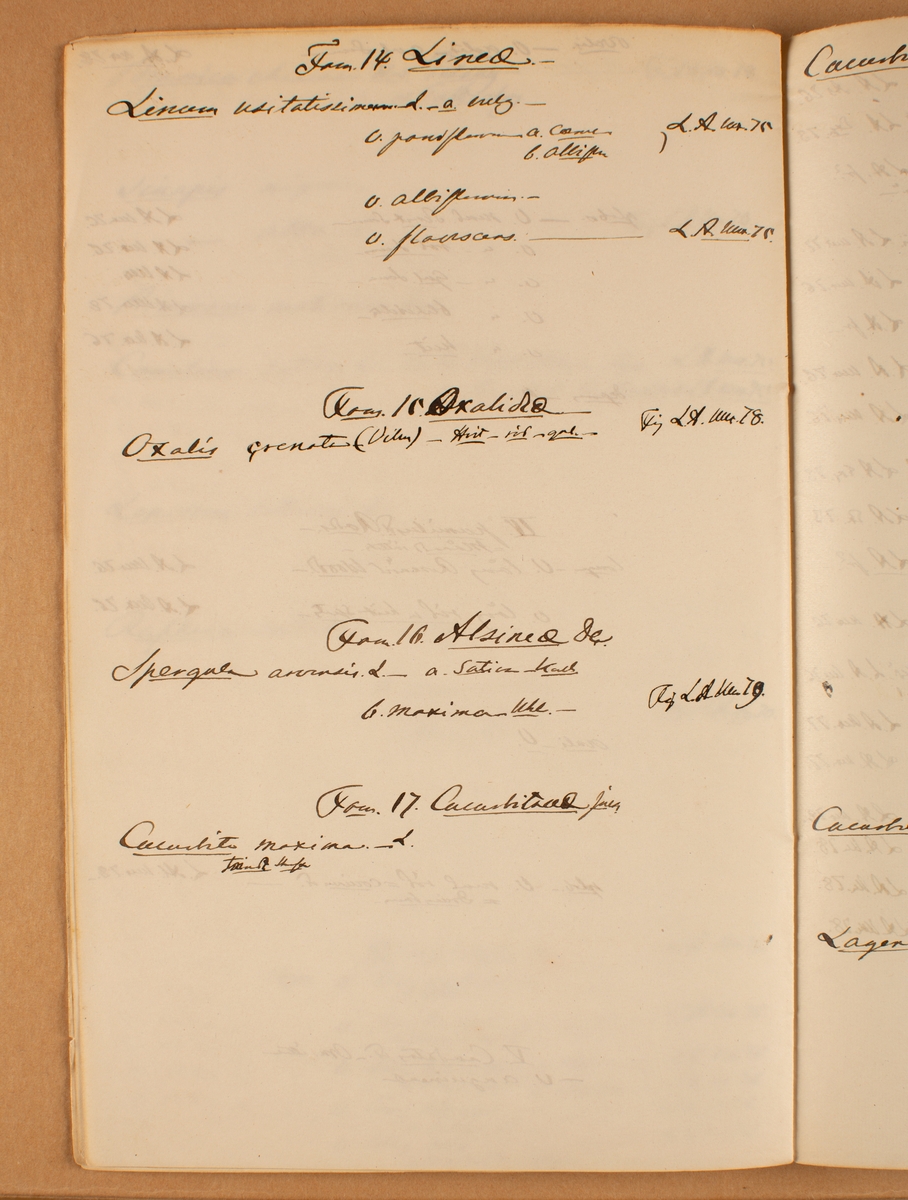 Fam. 14. Lineæ. –
Linum usitatissimum L. – a. vulg. –
v. parviflorum a. coerul
b. albifl L. A. Mus. 75
v. albiflorum. –
v. flavescens. L. A. Mus. 75.
Fam. 15 Oxalideæ
Oxalis crenata – Hvit – röd – gul – Fig L. A. Mus. 78.
Fam. 16. Alsineæ Dc.
Spergula arvensis. L. – a. sativa Koch
b. maxima Whe. – Fig L. A. Mus 79.
Fam. 17. Cucurbitaceæ Juss
Cucurbita maxima. – L.
Cucurb
Cucurb
Lagen